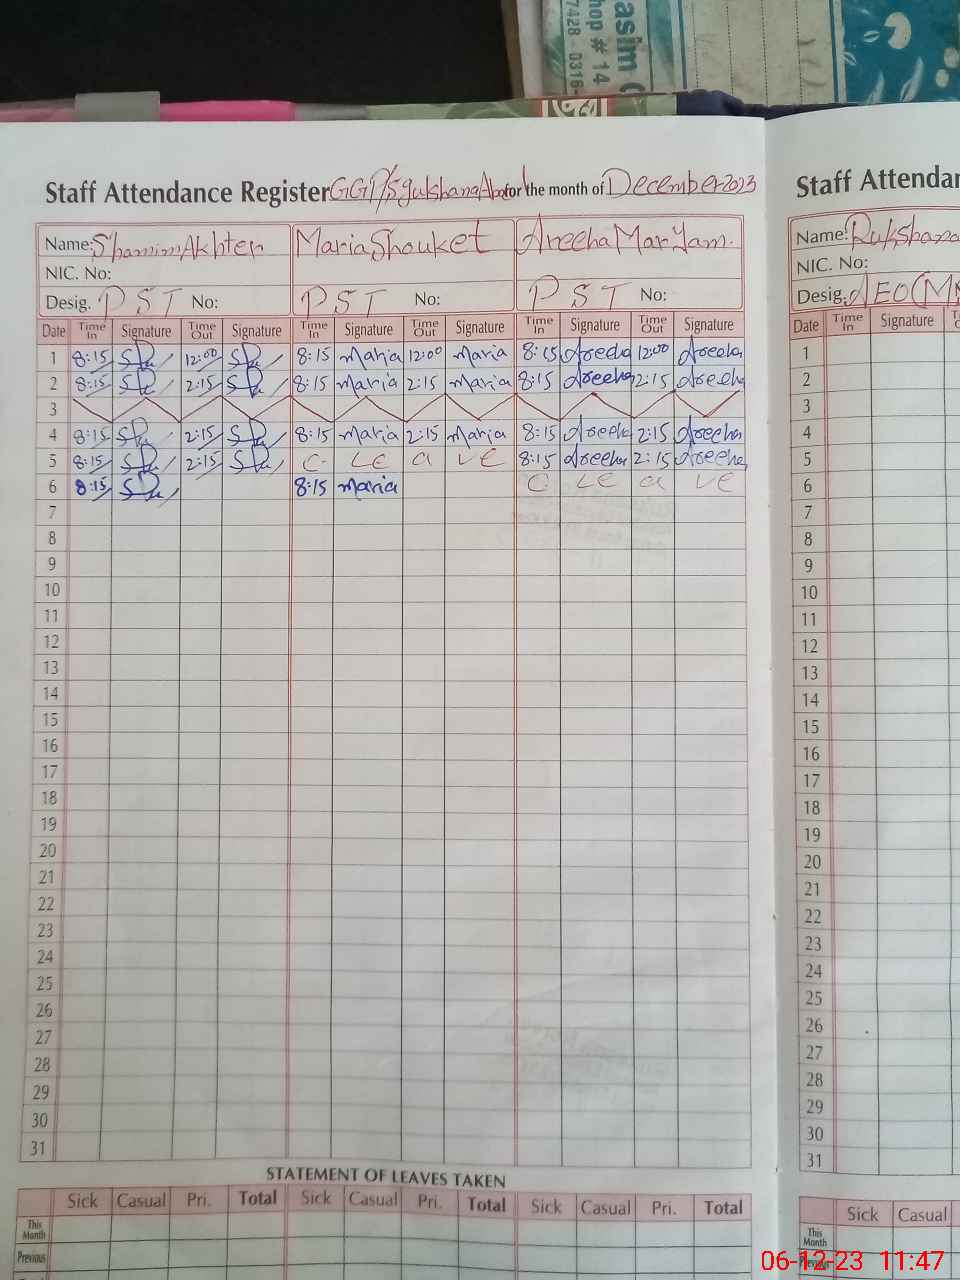 asim
hop # 14
7428 - 0316-
Staff Attendance Register GGP/S gulshana Abad for the month of December 2023
Name: Shamim Akhter Maria Shouket Areeha Maryam.
NIC. No:
Desig. PST No: PST No: PST No:
Date Time In Signature Time Out Signature Time In Signature Time Out Signature Time In Signature Time Out Signature
1 8:15 12:00 8:15 Maria 12:00 Maria 8:15 Areeha 12:00 Areeha
2 8:15 2:15 8:15 Maria 2:15 Maria 8:15 Areeha 2:15 Areeha
3
4 8:15 2:15 8:15 Maria 2:15 Maria 8:15 Areeha 2:15 Areeha
5 8:15 2:15 C- Le a ve 8:15 Areeha 2:15 Areeha
6 8:15 8:15 Maria C Le a ve
7
8
9
10
11
12
13
14
15
16
17
18
19
20
21
22
23
24
25
26
27
28
29
30
31
STATEMENT OF LEAVES TAKEN
Sick Casual Pri. Total Sick Casual Pri. Total Sick Casual Pri. Total
This Month
Previous
Staff Attendan
Name: Rukshana
NIC. No:
Desig. AEO (M
Date Time In Signature
1
2
3
4
5
6
7
8
9
10
11
12
13
14
15
16
17
18
19
20
21
22
23
24
25
26
27
28
29
30
31
Sick Casual
This Month
Previous
06-12-23 11:47